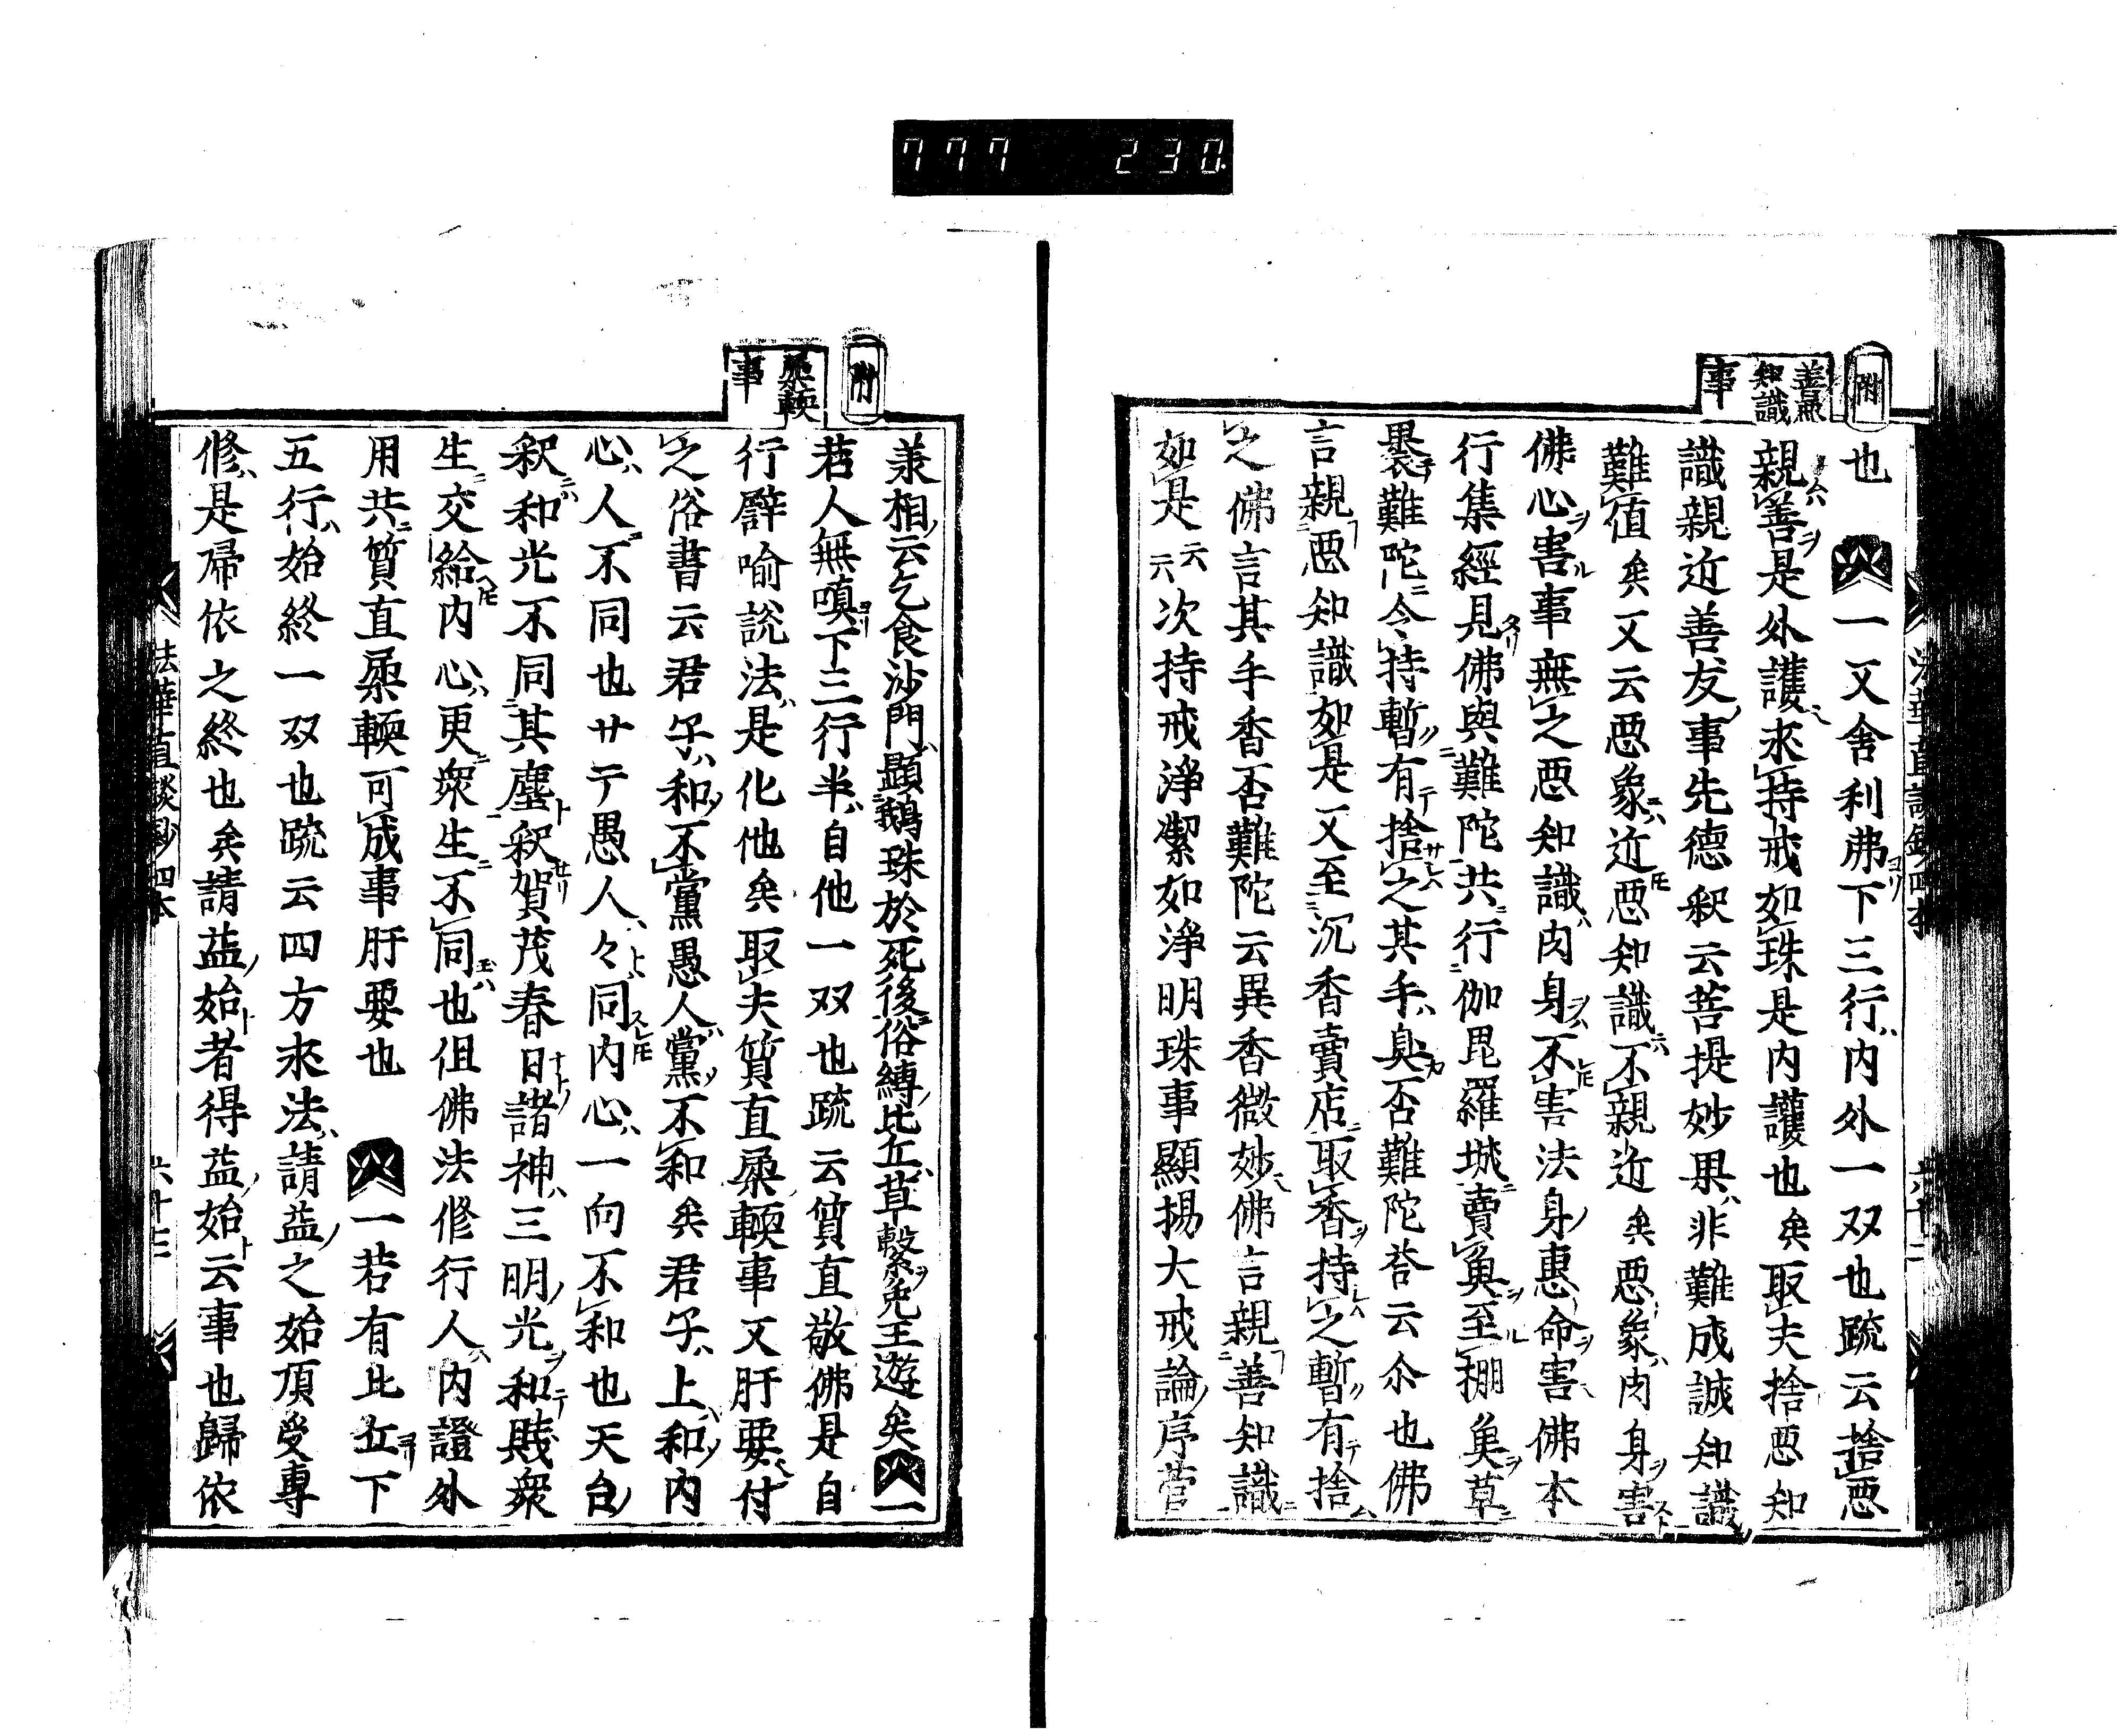 777 230
附
善悪
知識
事
也 一又舎利弗下三行内外一双也䟽云捨悪
親善是外護求持戒如珠是内護也矣取夫捨悪知
識親近善友事先徳釈云菩提妙果非難成誠知識
難値矣又云悪象近悪知識不親近矣悪象肉身害
佛心害事無之悪知識肉身不害法身惠命害佛本
行集經見佛與難陀共行伽毘羅城賣魚至棚魚草
褁難陀令持暫有捨之其手臭否難陀荅云尒也佛
言親悪知識如是又至沉香賣店取香持之暫有捨
之佛言其手香否難陀云異香微妙佛言親善知識
如是云云次持戒浄潔如浄明珠事顕揚大戒論序菅
附
柔輭
事
兼相云乞食沙門顕鵝珠於死後俗縛比丘草繫免王遊矣 一
若人無嗔下三行半自他一双也䟽云質直敬佛是自
行譬喻説法是化他矣取夫質直柔輭事又肝要付
之俗書云君子和不黨愚人黨不和矣君子上和内
心人不同也サテ愚人々同内心一向不和也天台
釈和光不同其塵釈賀茂春日諸神三明光和賎衆
生交給内心更衆生不同也但佛法修行人内證外
用共質直柔輭可成事肝要也 一若有比丘下
五行始終一双也䟽云四方求法請益之始頂受專
修是帰依之終也矣請益始者得益始云事也歸依
法華直談鈔四本 六十七